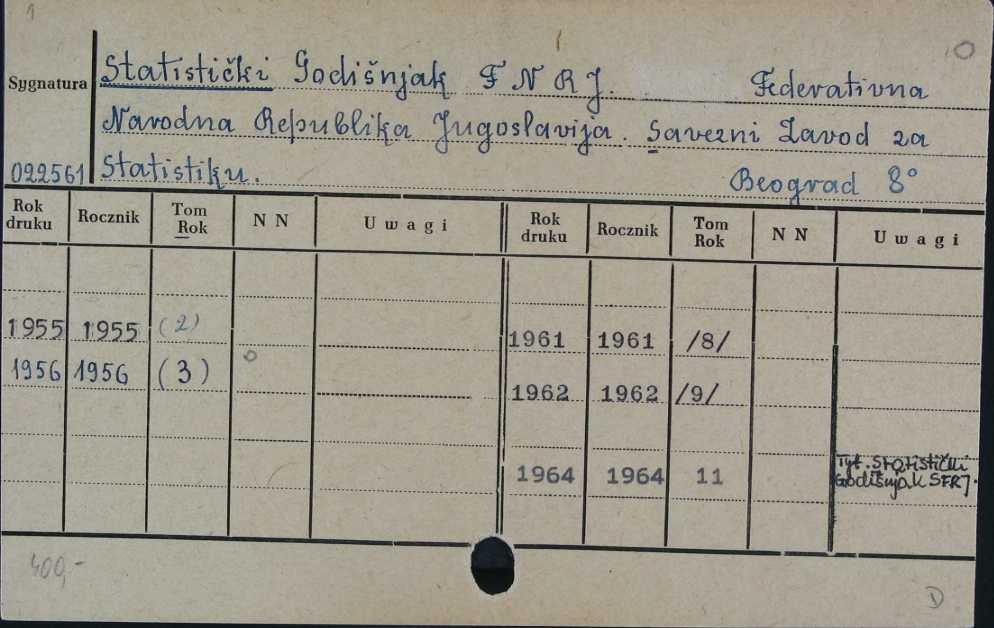 1
O
Sygnatura
Statistički Godišnjak F N R J. Federativna
Narodna Republika Jugoslavija. Savezni Zavod za
022561 Statistiku. Beograd 8°
Rok druku Rocznik Tom Rok N N U w a g i Rok druku Rocznik Tom Rok N N U w a g i
1955 1955 (2) 1961 1961 /8/
1956 1956 (3) 1962 1962 /9/
1964 1964 11 Tyt. Statistički
Godišnjak SFRJ.
400,-
D